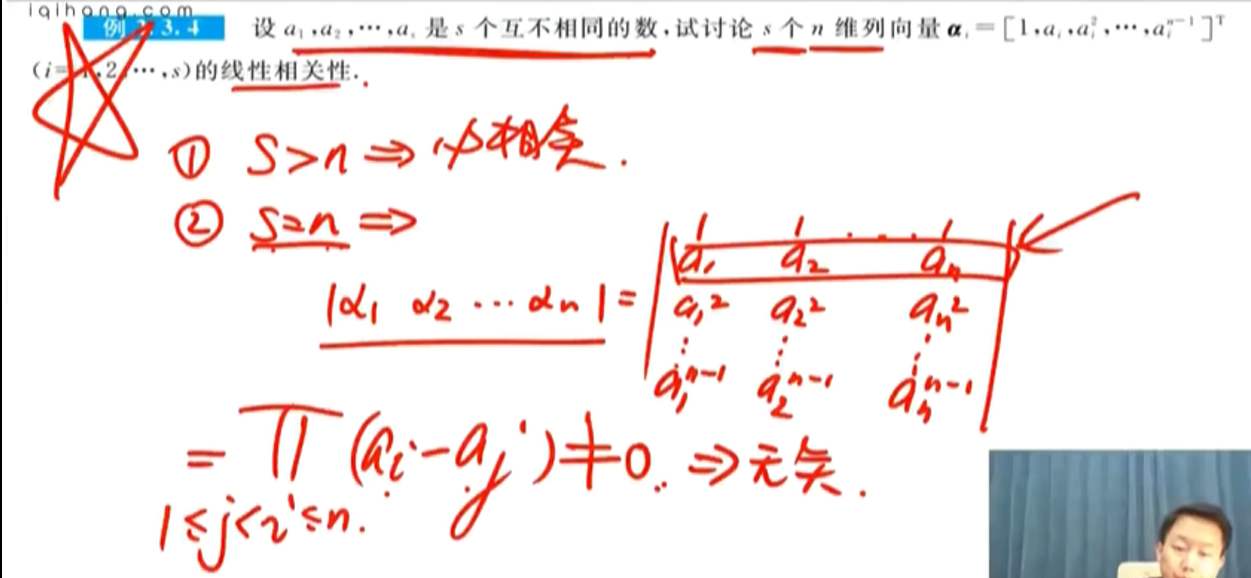 iqihang.com
例 3.4 设 a₁,a₂,⋯,aₛ 是 s 个互不相同的数,试讨论 s 个 n 维列向量 αᵢ=[1,aᵢ,aᵢ²,⋯,aᵢⁿ⁻¹]ᵀ
(i=1,2,⋯,s)的线性相关性.
① S>n ⇒ 必相关.
② S=n ⇒
|α₁ α₂ ⋯ αn| =
| 1 1 ⋯ 1 |
| a₁ a₂ aₙ |
| a₁² a₂² aₙ² |
| ⋮ ⋮ ⋮ |
| a₁ⁿ⁻¹ a₂ⁿ⁻¹ aₙⁿ⁻¹ |
= ∏ (aᵢ-aⱼ)≠0. ⇒无关.
1≤j<i≤n.